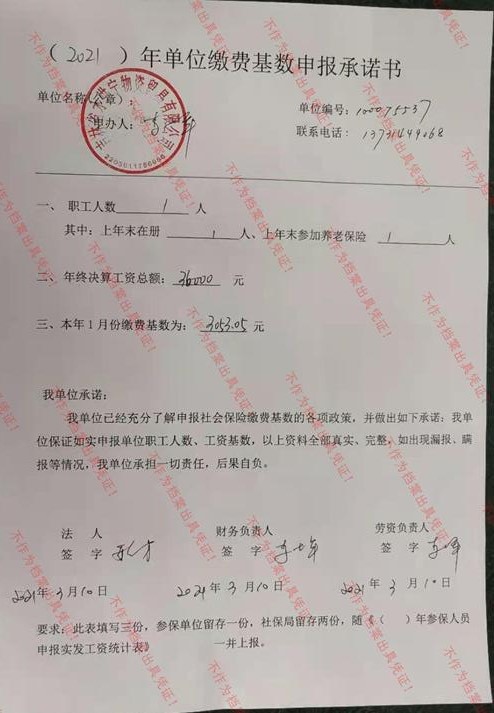 （2021）年单位缴费基数申报承诺书
单位名称（章）：
单位编号：100075537
申办人：
联系电话：13731649068
2205011256666
一、 职工人数 1 人
其中：上年末在册 1 人、上年末参加养老保险 1 人
二、年终决算工资总额： 36000 元
三、本年1月份缴费基数为： 3053.05 元
我单位承诺：
我单位已经充分了解申报社会保险缴费基数的各项政策，并做出如下承诺：我单
位保证如实申报单位职工人数、工资基数，以上资料全部真实、完整，如出现漏报、瞒
报等情况，我单位承担一切责任，后果自负。
法 人 财务负责人 劳资负责人
签 字 签 字 签 字
2021年3月10日 2021年3月10日 2021年3月10日
要求：此表填写三份，参保单位留存一份，社保局留存两份，随《（ ）年参保人员
申报实发工资统计表》 一并上报。
不作为档案出具凭证！